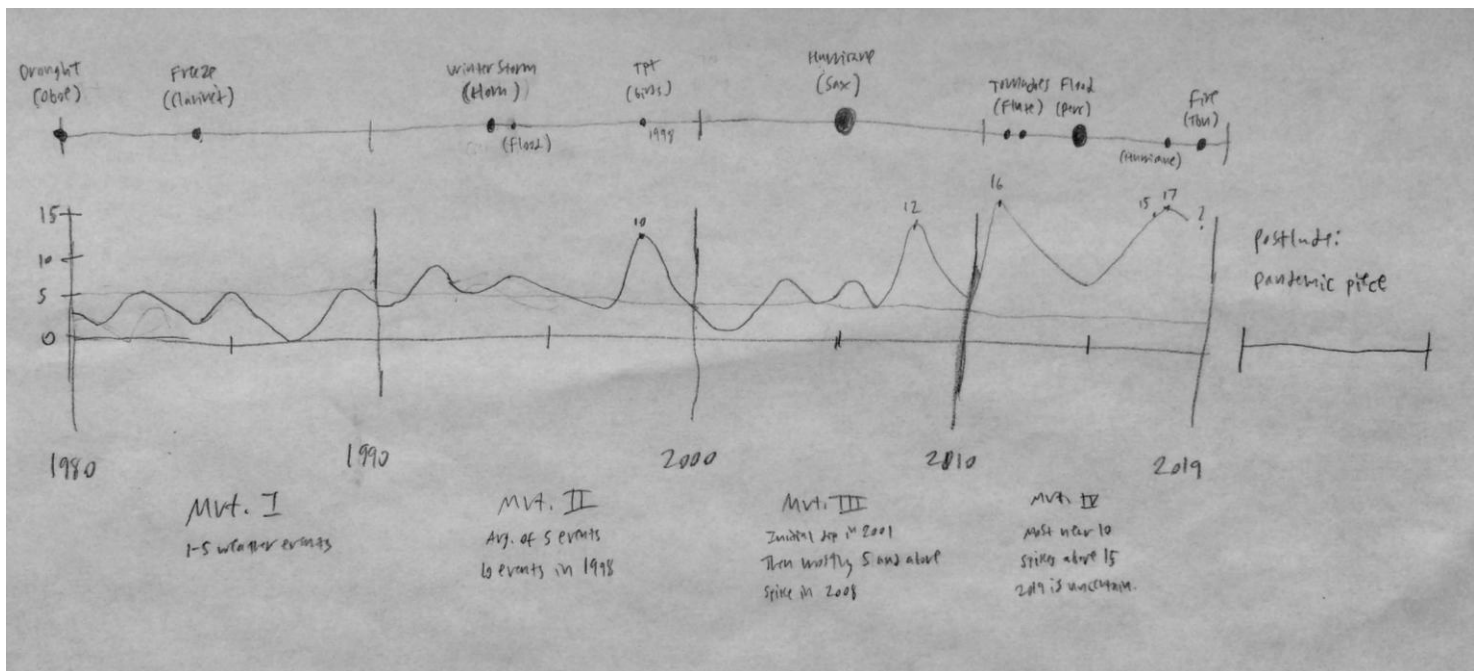 Drought
(Oboe)
Freeze
(Clarinet)
Winter Storm
(Horn)
(Flood)
TPT
(birds)
1998
Hurricane
(Sax)
Tornadoes Flood
(Flute) (Perc)
(Hurricane)
Fire
(Tbn)
15
10
5
0
10
12
16
15 17
?
Postlude:
pandemic piece
1980
1990
2000
2010
2019
Mvt. I
1-5 weather events
Mvt. II
Avg. of 5 events
10 events in 1998
Mvt. III
Initial dip in 2001
Then mostly 5 and above
Spike in 2008
Mvt. IV
Most near 10
Spikes above 15
2019 is uncertain.